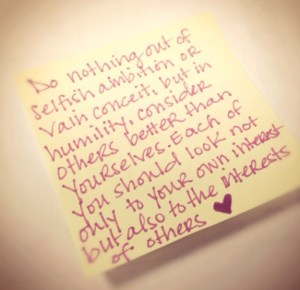 Do nothing out of
selfish ambition or
vain conceit, but in
humility, consider
others better than
yourselves. Each of
you should look not
only to your own interest
but also to the interests
of others